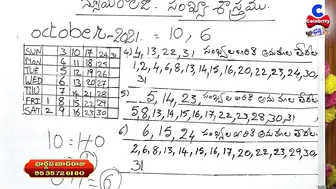 న్యూమరాలజీ. సంఖ్యా శాస్త్రము.
Celebrity
october-2021. = 10, 6
SUN 3 10 17 24 31
MON 4 11 18 25
TUE 5 12 19 26
WED 6 13 20 27
THU 7 14 21 28
FRI 1 8 15 22 29
SAT 2 9 16 23 30
4) 4, 13, 22, 31 సంఖ్యల వారికి అనుకూల తేదీలు
1, 2, 4, 6, 8, 13, 14, 15, 16, 20, 22, 23, 24, 30,
31
5) 5, 14, 23, సంఖ్యల వారికి అనుకూల తేదీలు
5, 8, 13, 14, 15, 16, 17, 22, 23, 28, 30, 31
6) 6, 15, 24 సంఖ్యల వారికి అనుకూల తేదీలు
2, 6, 8, 13, 14, 15, 16, 17, 20, 22, 23, 29, 30
31
10 = 1+0
= 6
95357 26180